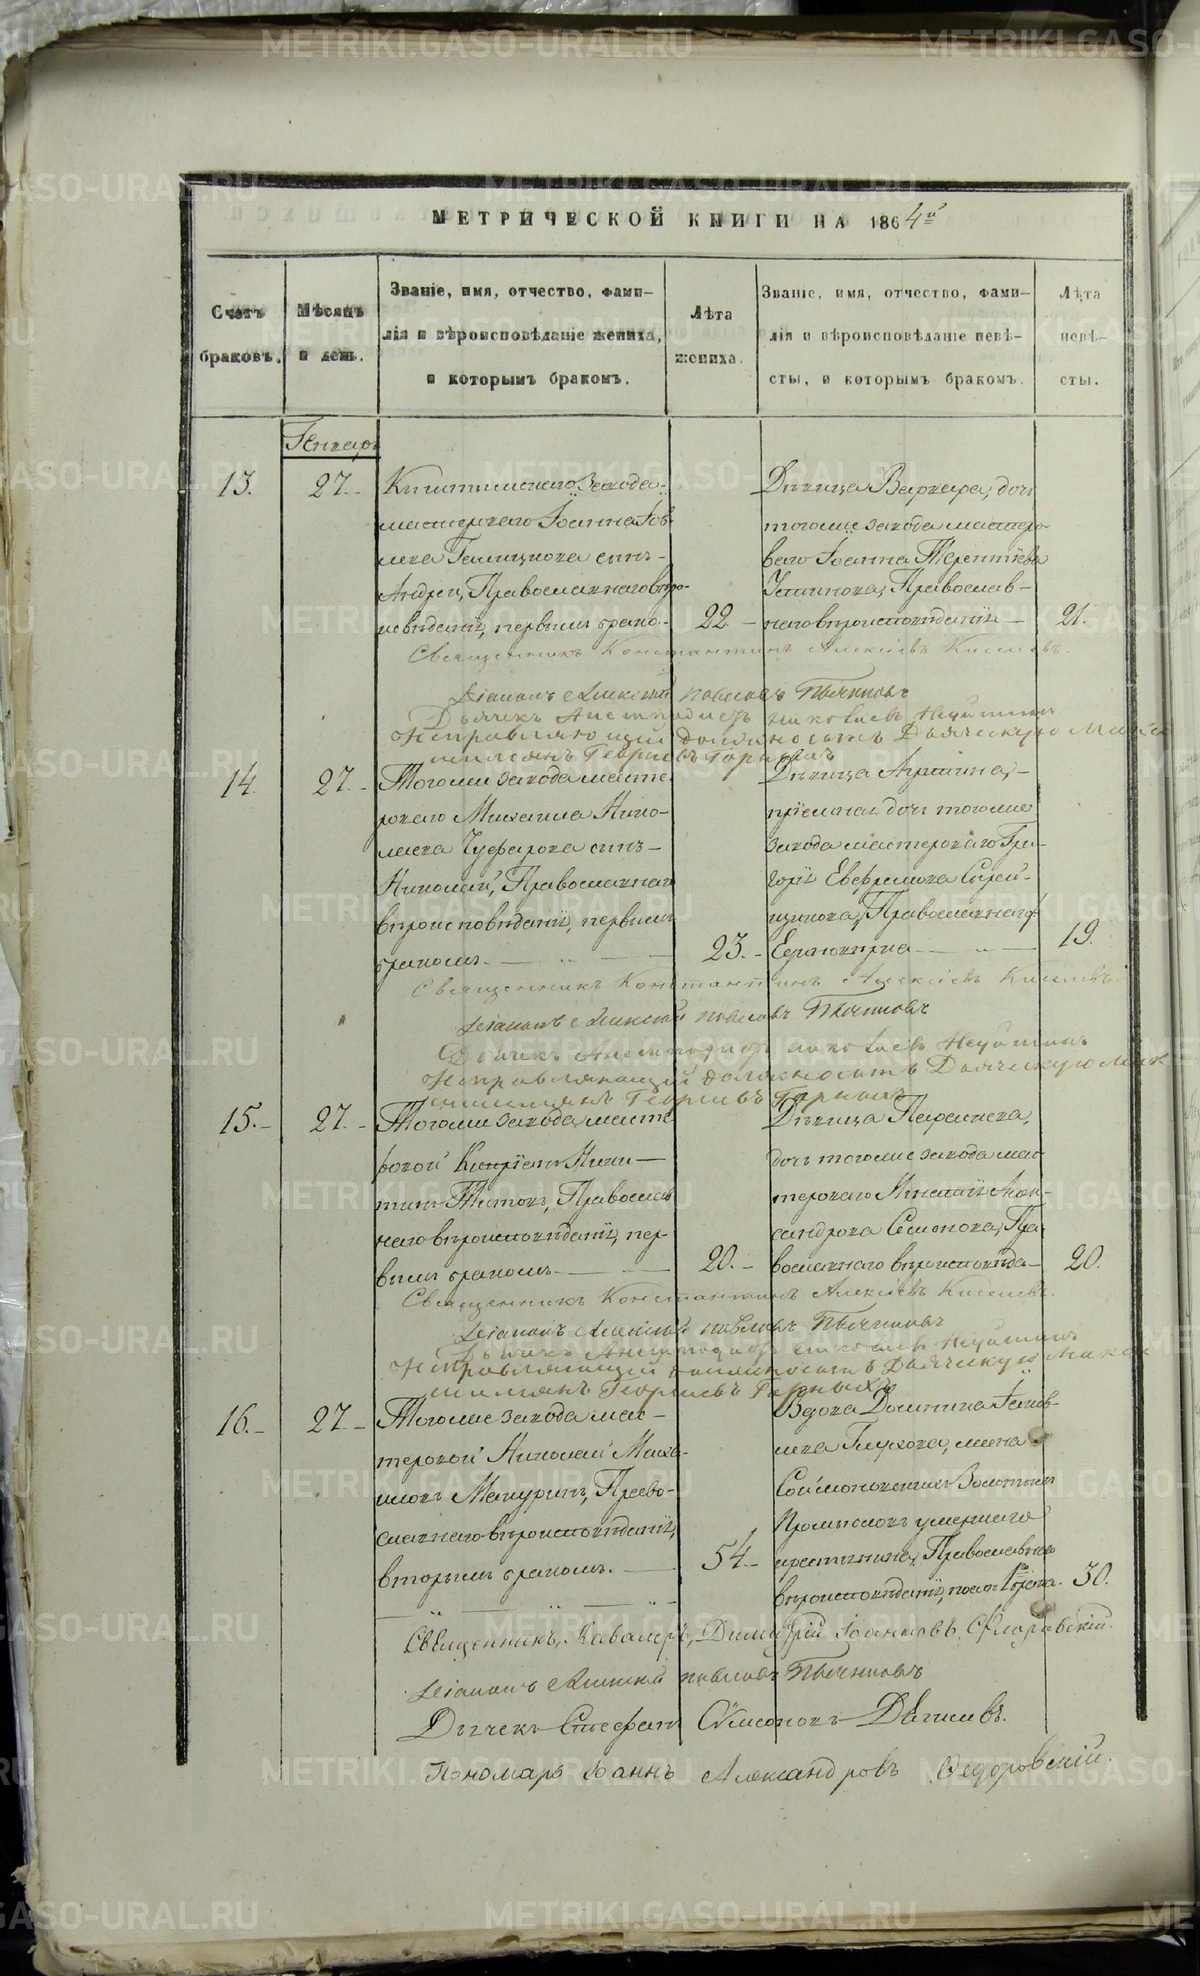 МЕТРИЧЕСКОЙ КНИГИ НА 1864й
Счетъ браковъ.
Мѣсяцъ и день.
Званіе, имя, отчество, фами-
лія и вѣроисповѣданіе жениха,
и которымъ бракомъ.
Лѣта
жениха.
Званіе, имя, отчество, фами-
лія и вѣроисповѣданіе невѣ-
сты, и которымъ бракомъ.
Лѣта
невѣ-
сты.
Генварь
13.
27.
Кыштымскаго Завода
мастероваго Іоанна Іов-
лева Галицкова сынъ
Андрей, Православнаго вѣро-
исвѣданія, первымъ брако-
22
Дѣвица Варвара, дочь
тогоже завода мастеро-
ваго Іоанна Терентіева
Устинова, Православ-
наго вѣроисповѣданія
21.
Священникъ Константинъ Алексіевъ Киселевъ.
Діаконъ Алексій Павловъ Пьянковъ
Дьячекъ Анемподистъ Николаевъ
Исправляющій должность Дьяческую Макси
милианъ Георгіевъ Горныхъ
14.
27.
Тогоже завода масте-
роваго Михаила Нико-
лаева сынъ
Николай, Православнаго
вѣроисповѣданія, первымъ
бракомъ.
23.
Дѣвица Агрипина,
пріемная дочь тогоже
завода мастероваго Гри-
горія Евфремова
Православнаго
19.
Священникъ Константинъ Алексіевъ Киселевъ.
Діаконъ Алексій Павловъ Пьянковъ
Дьячекъ Анемподистъ Николаевъ
Исправляющій должность Дьяческую Мак
симилианъ Георгіевъ Горныхъ
15.
27.
Тогоже завода масте-
ровой Кипріянъ Ники-
тинъ Титовъ, Православ
наго вѣроисповѣданія, пер-
вымъ бракомъ
20.
Дѣвица Параскева,
дочь тогоже завода мас-
тероваго Алек-
сандрова Семенова, Пра-
вославнаго вѣроисповѣда-
20.
Священникъ Константинъ Алексіевъ Киселевъ.
Діаконъ Алексій Павловъ Пьянковъ
Дьячекъ Анемподистъ Николаевъ
Исправляющій должность Дьяческую Макси
милианъ Георгіевъ Горныхъ
16.
27
Тогоже завода мас-
теровой Николай Миха-
иловъ Мокуринъ, Право-
славнаго вѣроисповѣданія,
вторымъ бракомъ.
54.
Вдова Домника Іаков-
лева Глухова, жена
Соймоновскихъ Золотыхъ
Промысловъ умершаго
крестьянина, Православнаго
вѣроисповѣданія, послѣ 1го брака.
30.
Священникъ, Кавалеръ, Димитрій Іоанновъ Флоровскій.
Діаконъ Алексій Павловъ Пьянковъ
Дьячекъ Стефанъ Симеоновъ Дягилевъ.
Пономарь Іоаннъ Александровъ Федоровскій.